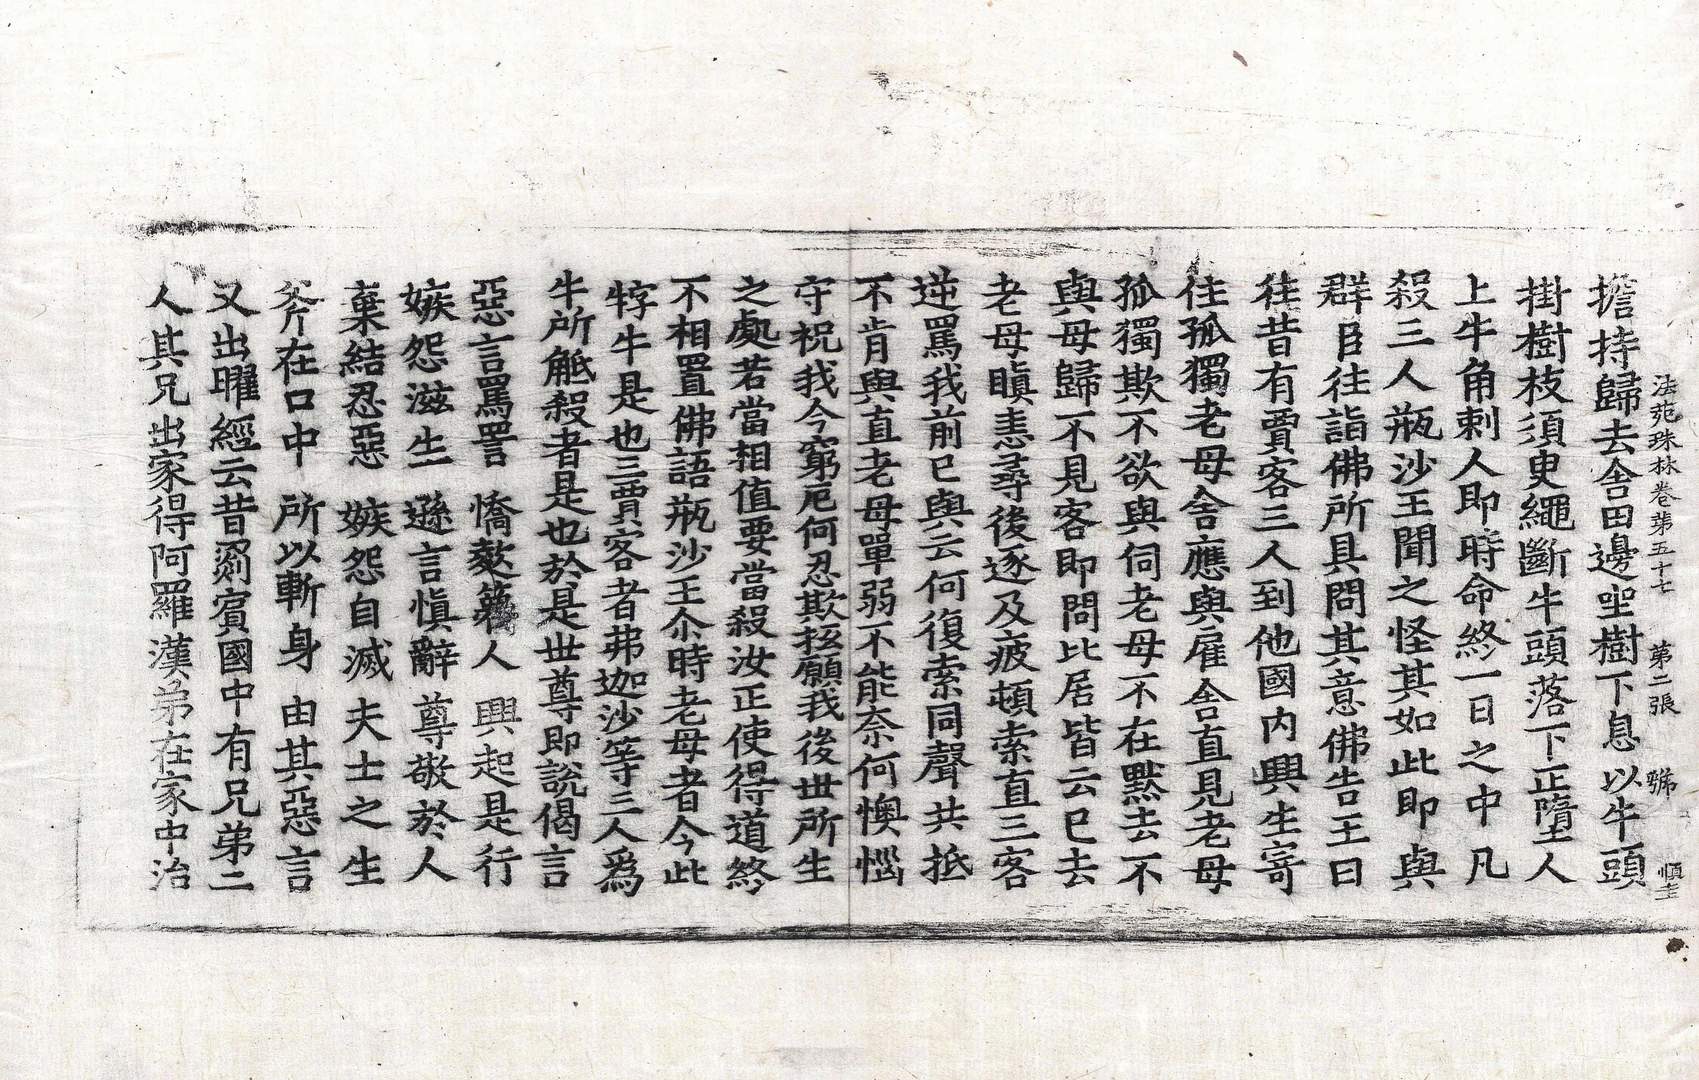 法苑珠林卷第五十七 第二張 號 慎圭
擔持歸去舍田邊坐樹下息以牛頭
掛樹枝須臾繩斷牛頭落下正墮人
上牛角刺人即時命終一日之中凡
殺三人瓶沙王聞之怪其如此即與
群臣往詣佛所具問其意佛告王曰
往昔有賈客三人到他國內興生寄
住孤獨老母舍應與雇舍直見老母
孤獨欺不欲與伺老母不在默去不
與母歸不見客即問比居皆云已去
老母瞋恚尋後逐及疲頓索直三客
逆罵我前已與云何復索同聲共抵
不肯與直老母單弱不能奈何懊惱
守祝我今窮厄何忍欺抵願我後世所生
之處若當相值要當殺汝正使得道終
不相置佛語瓶沙王尒時老母者今此
牸牛是也三賈客者弗迦沙等三人爲
牛所觝殺者是也於是世尊即說偈言
惡言罵詈 憍欺蔑人 興起是行
嫉怨滋生 遜言慎辭 尊敬於人
棄結忍惡 嫉怨自滅 夫士之生
斧在口中 所以斬身 由其惡言
又出曜經云昔罽賓國中有兄弟二
人其兄出家得阿羅漢弟在家中治